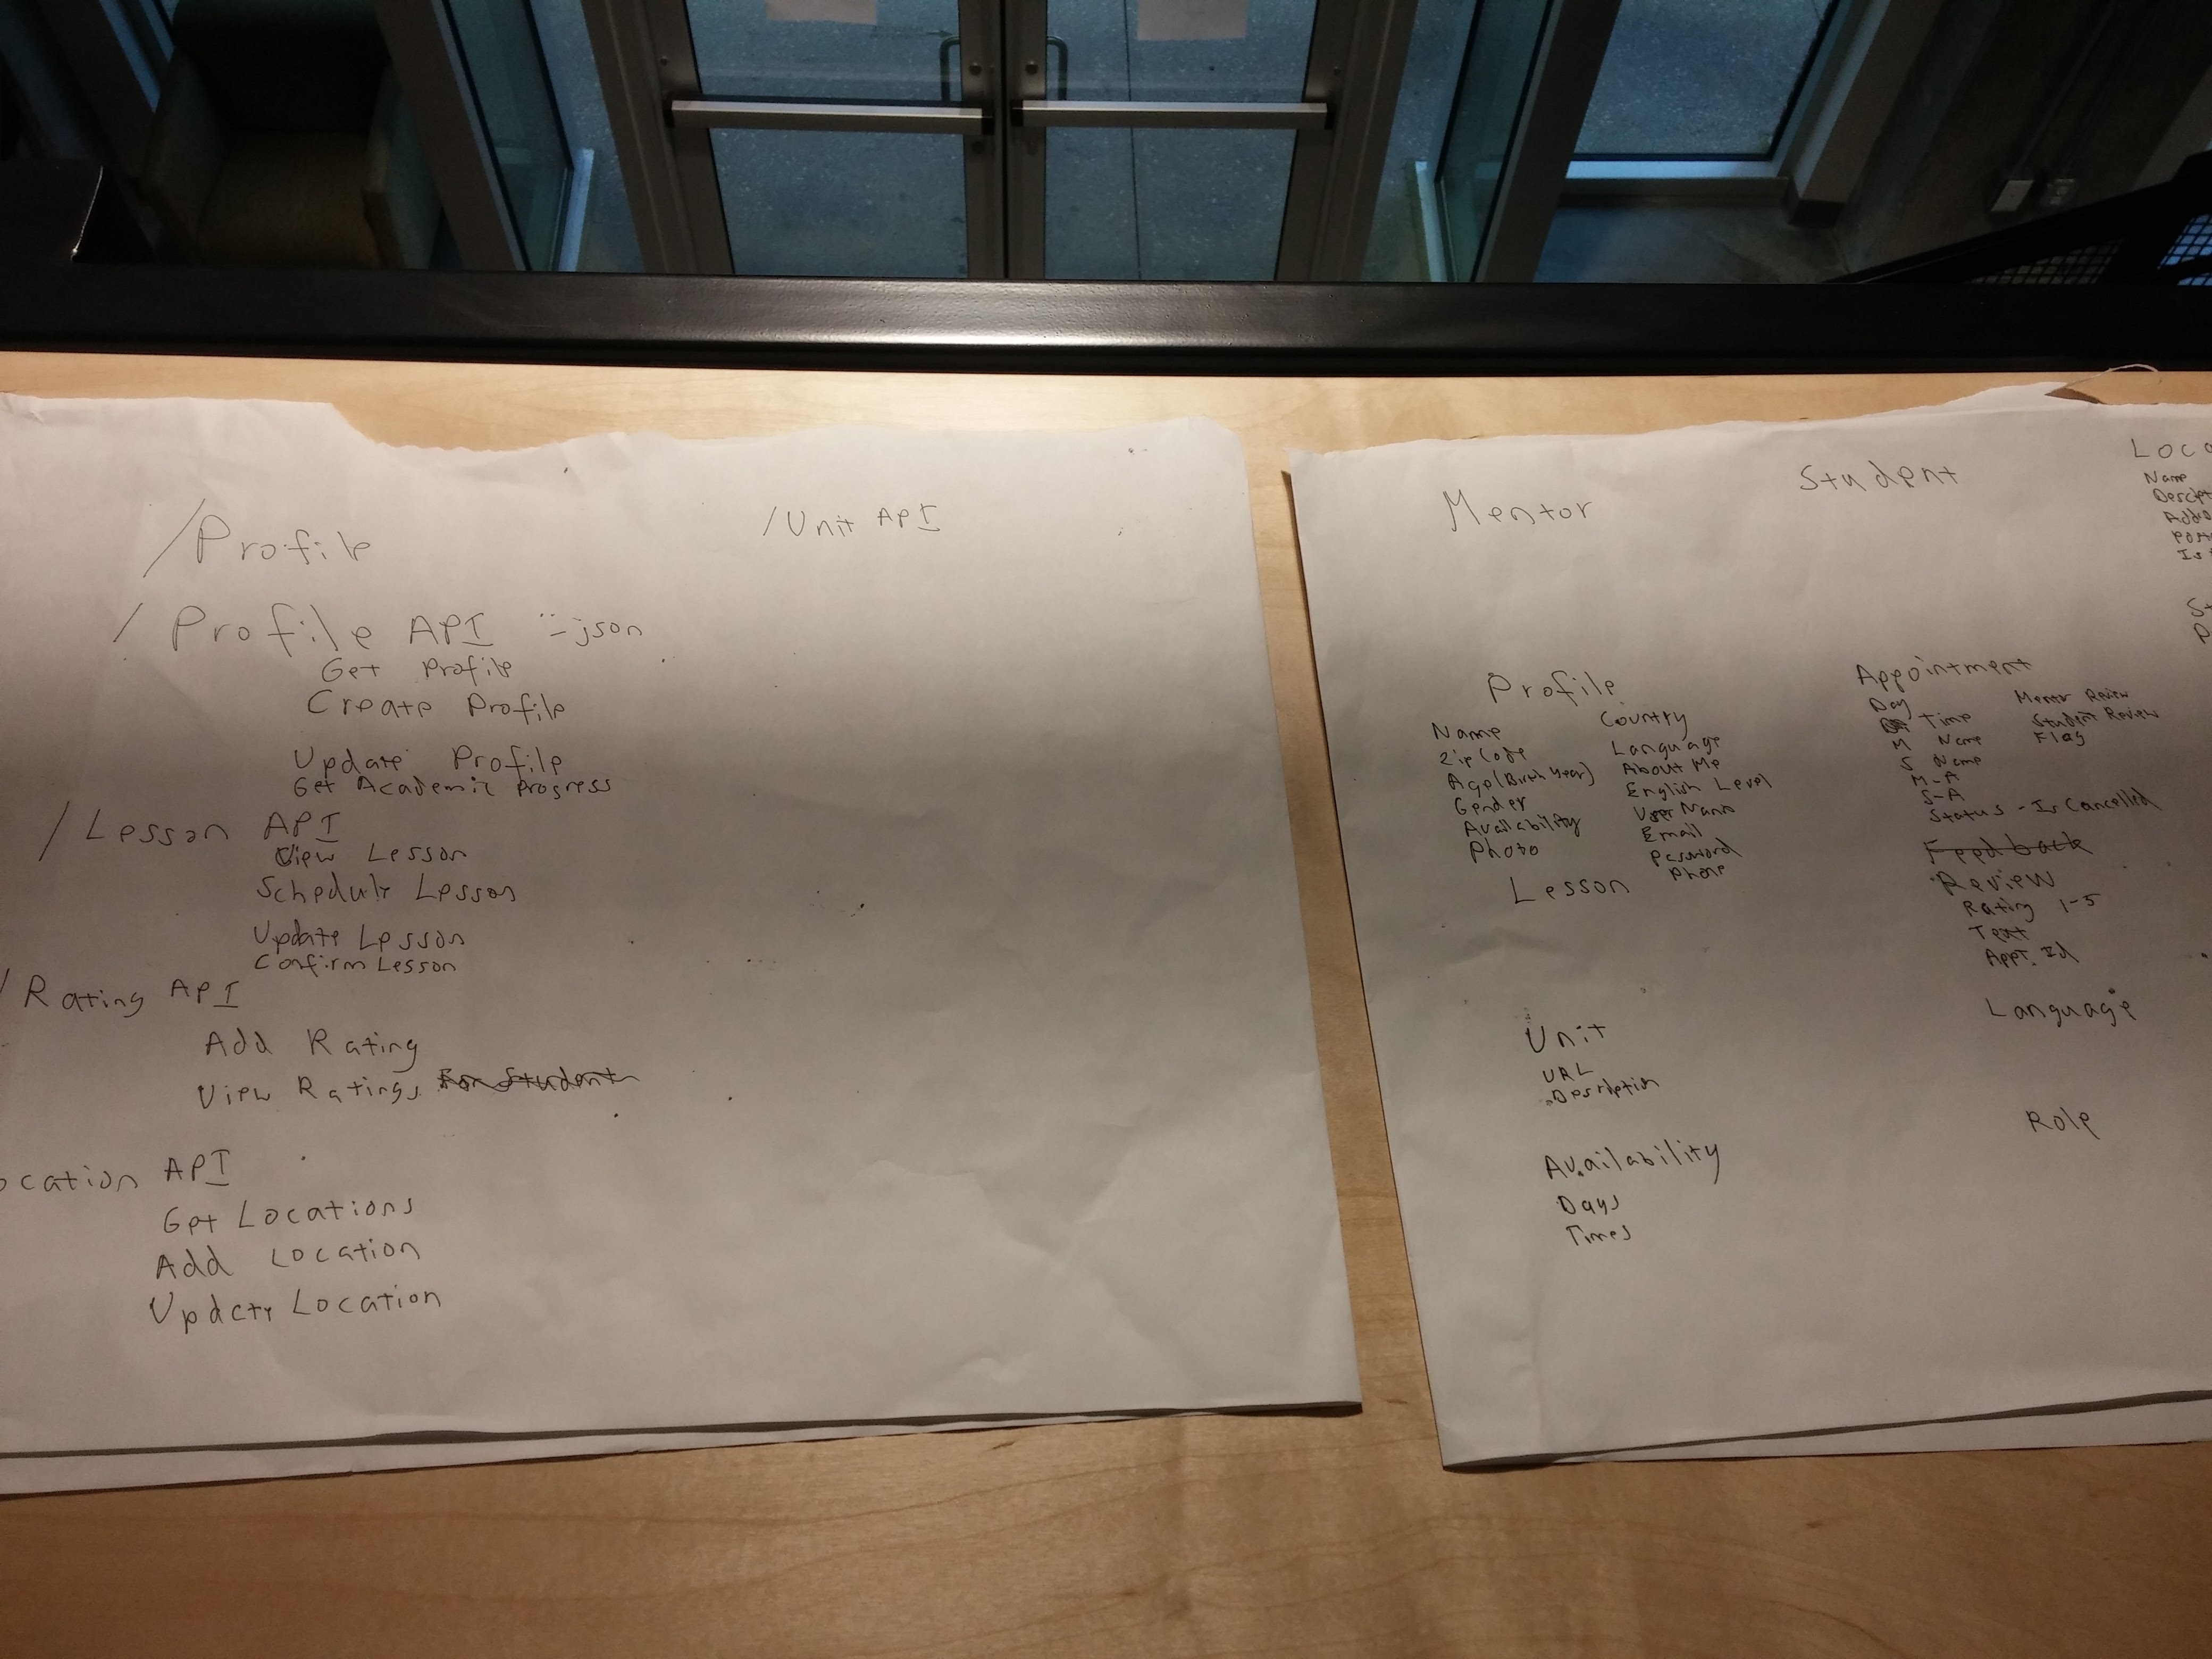 /Profile
/Unit API
/Profile API
-json
Get Profile
Create Profile
Update Profile
Get Academic Progress
/Lesson API
View Lesson
Schedule Lesson
Update Lesson
Confirm Lesson
/Rating API
Add Rating
View Ratings For Student
ocation API
Get Locations
Add Location
Update Location
Mentor
Student
Loca
Name
Is
Profile
Name
Zip Code
Age (Birth Year)
Gender
Availability
Photo
Country
Language
About Me
English Level
User Name
Email
Password
Phone
Lesson
Unit
URL
Description
Availability
Days
Times
Appointment
Day
Time
M Name
S Name
M-A
S-A
Status - Is Cancelled
Mentor Review
Student Review
Flag
Feedback
Review
Rating 1-5
Text
Appt. Id
Language
Role